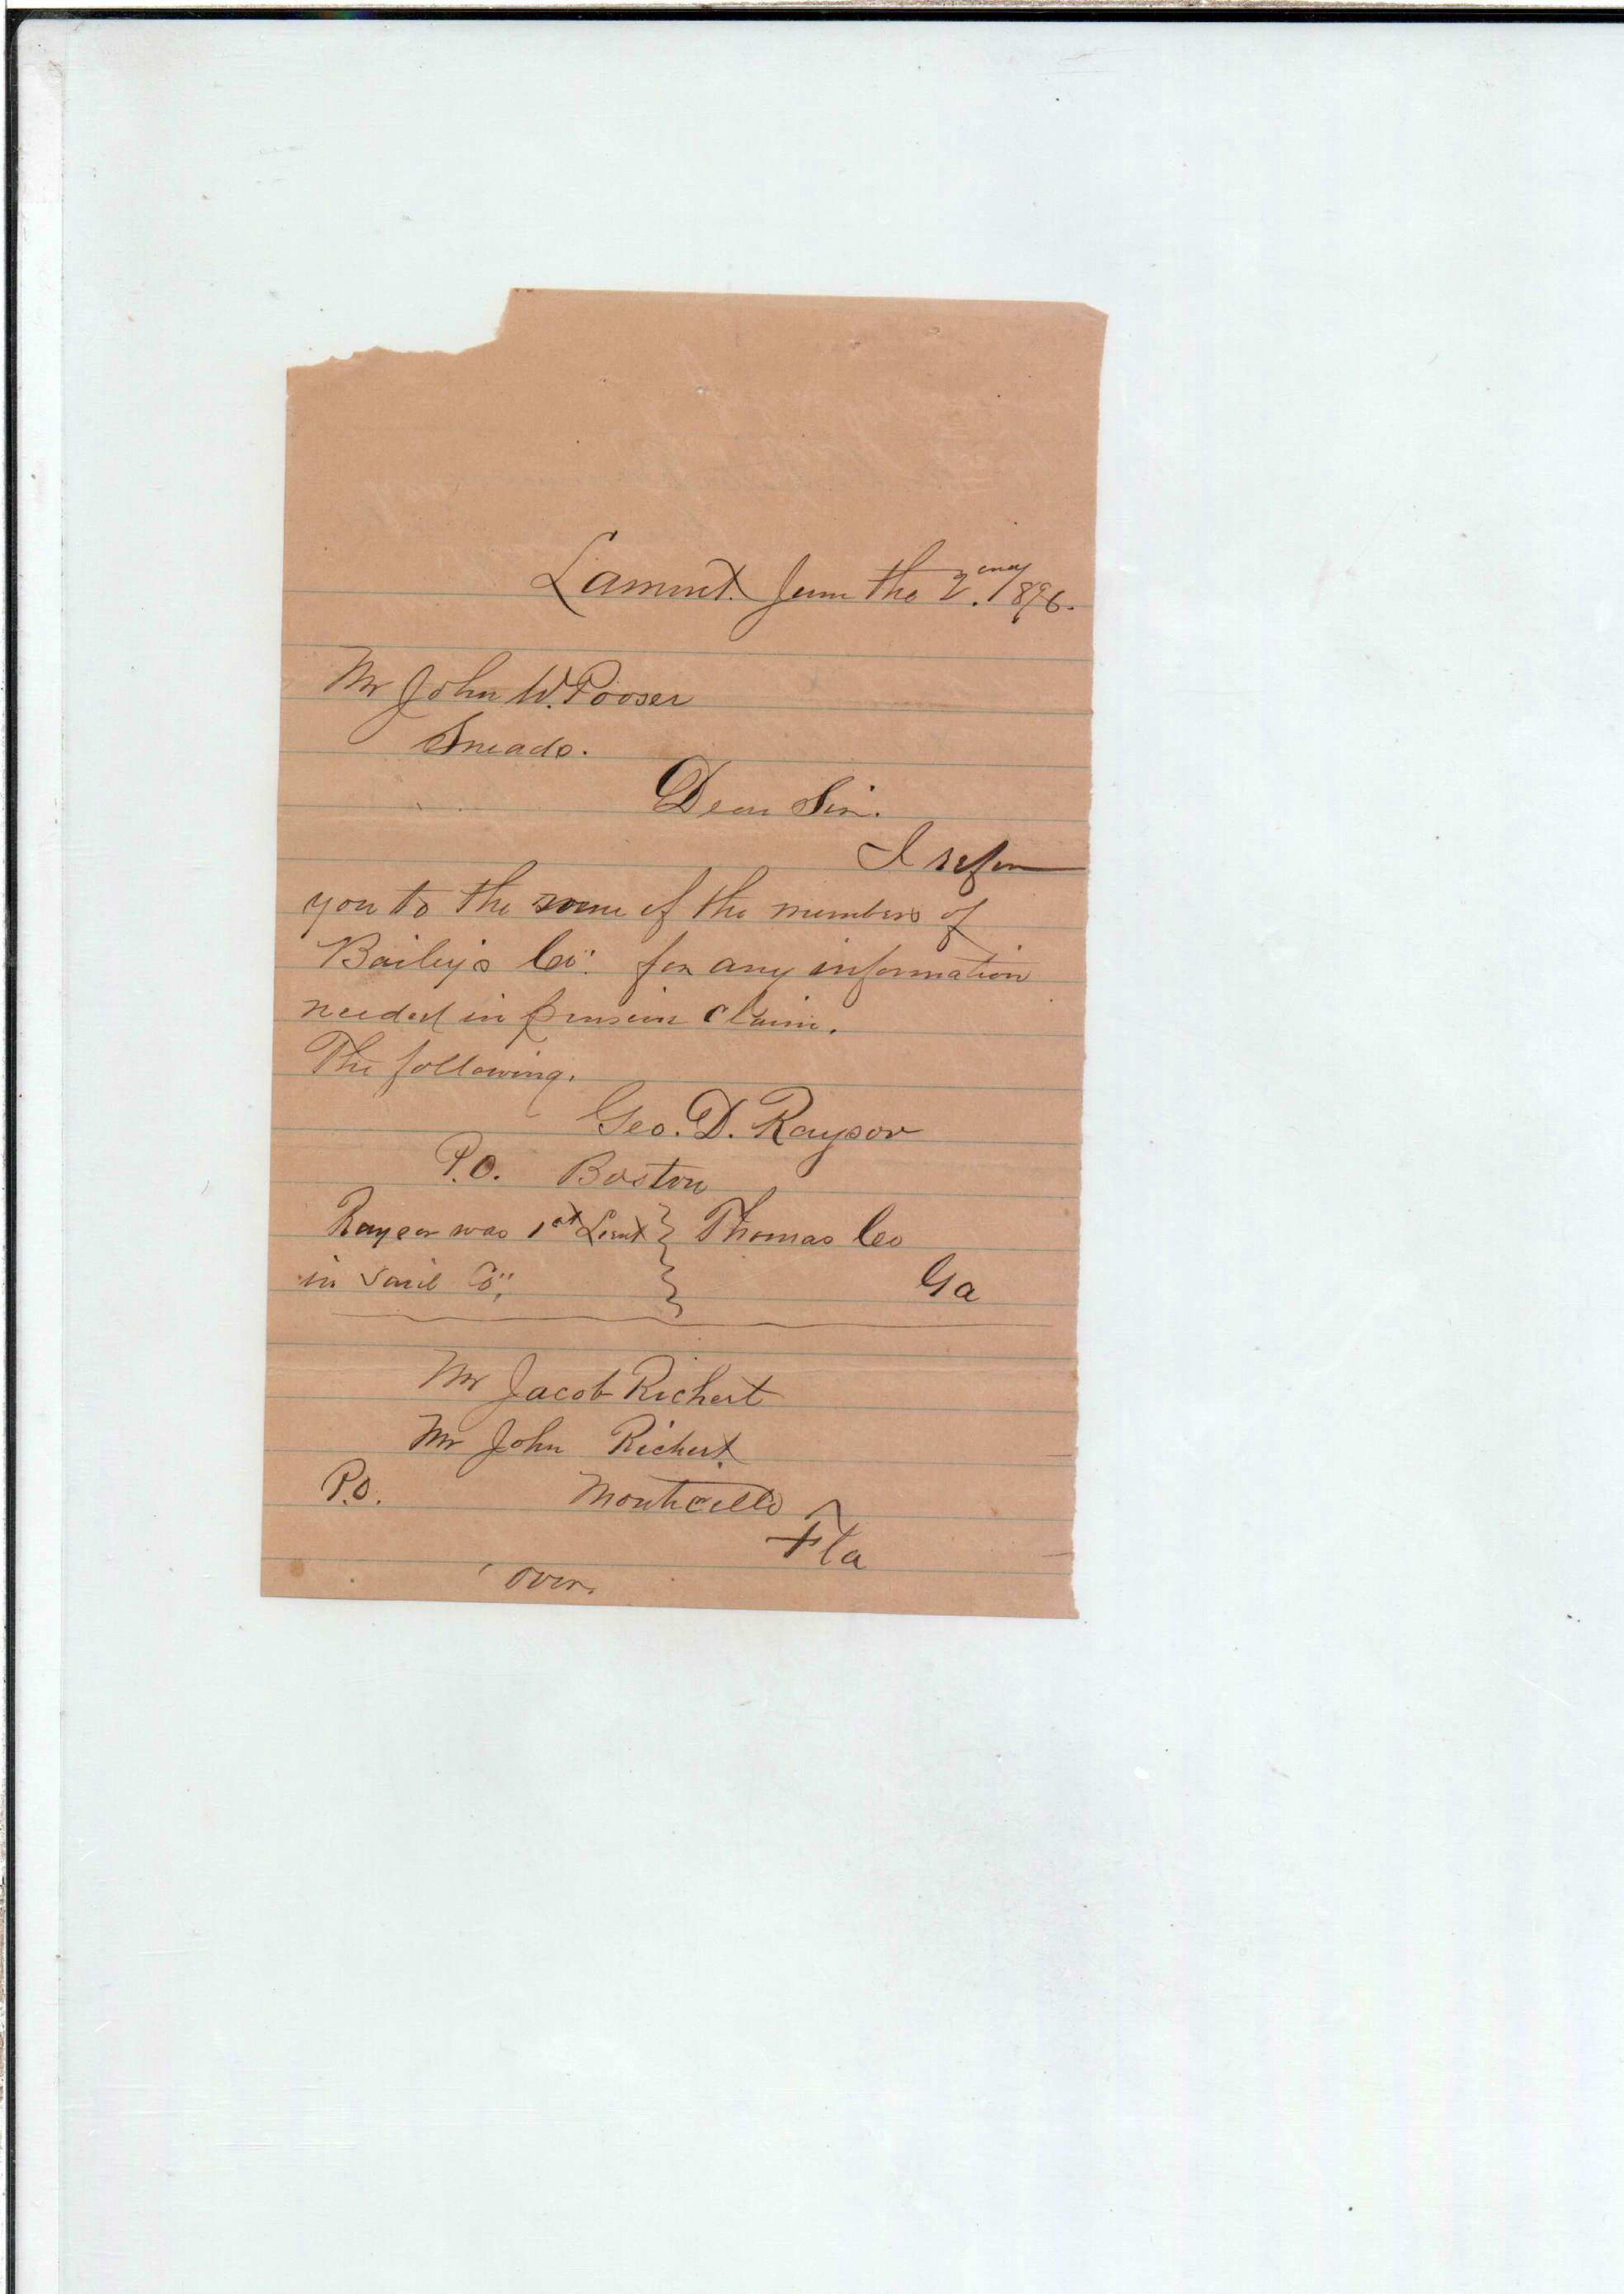 Lamont. June the 2.ond 1896.
Mr John W. Pooser
Sneads.
Dear Sir.
I refer
you to the some of the members of
Bailey's Co: for any information
needed in pension claim.
The following.
Geo. D. Raysor
P.O. Boston
Raysor was 1st Lieut } Thomas Co
in said Co; } Ga
Mr Jacob Richert
Mr John Richert
P.O. Monticello
Fla
over.